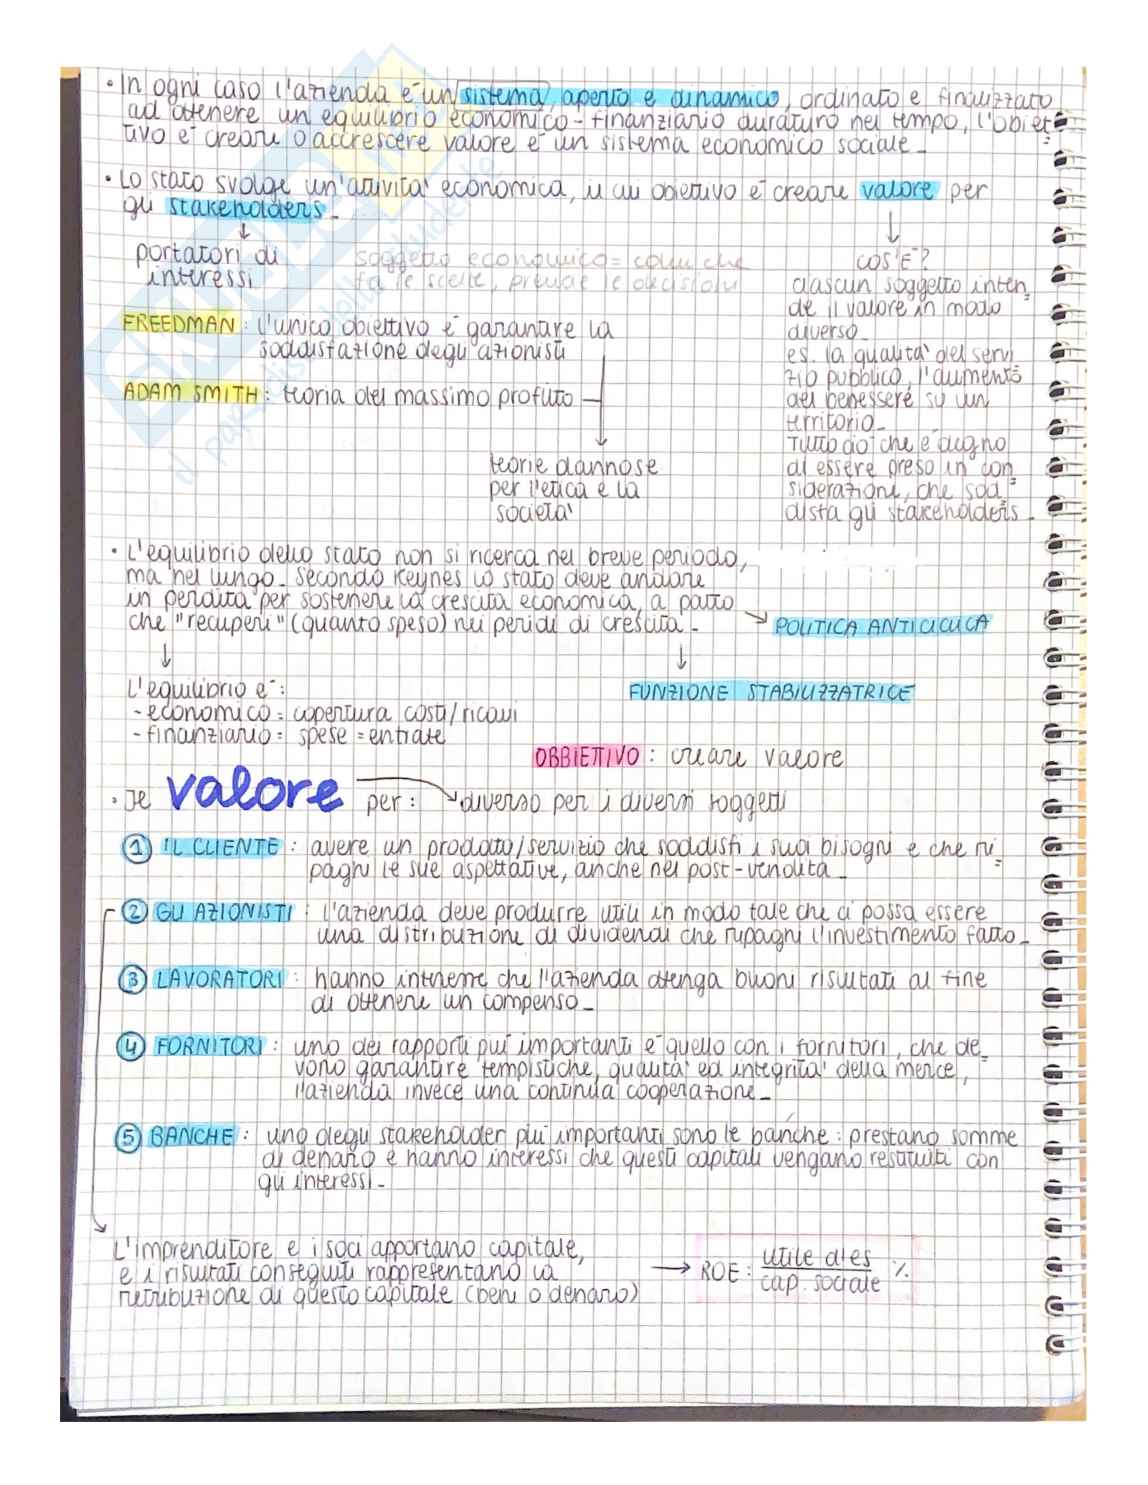 • In ogni caso l'azienda è un sistema, aperto e dinamico, ordinato e finalizzato
ad ottenere un equilibrio economico-finanziario duraturo nel tempo, l'obiet=
tivo è creare o accrescere valore è un sistema economico sociale_
• Lo stato svolge un'attività economica, il cui obiettivo è creare valore per
gli stakeholders_
↓
portatori di
interessi
soggetto economico = colui che
fa le scelte, prende le decisioni
↓
cos'È?
ciascun soggetto inten=
de il valore in modo
diverso_
es. la qualità del servi
zio pubblico, l'aumento
del benessere su un
territorio_
Tutto ciò che è degno
di essere preso in con=
siderazione, che sod=
disfa gli stakeholders_
FREEDMAN: l'unico obiettivo è garantire la
soddisfazione degli azionisti
ADAM SMITH: teoria del massimo profitto
↓
teorie dannose
per l'etica e la
società
• L'equilibrio dello stato non si ricerca nel breve periodo,
ma nel lungo_ Secondo Keynes lo stato deve andare
in perdita per sostenere la crescita economica, a patto
che "recuperi" (quanto speso) nei peridi di crescita_
→ POLITICA ANTICICLICA
↓
L'equilibrio è:
- economico = copertura costi/ricavi
- finanziario = spese = entrate
↓
FUNZIONE STABILIZZATRICE
OBBIETTIVO: creare valore
• Je valore per: → diverso per i diversi soggetti
1 IL CLIENTE: avere un prodotto/servizio che soddisfi i sua bisogni e che ri=
paghi le sue aspettative, anche nel post-vendita_
2 GLI AZIONISTI: l'azienda deve produrre utili in modo tale che ci possa essere
una distribuzione di dividendi che ripaghi l'investimento fatto_
3 LAVORATORI: hanno interesse che l'azienda ottenga buoni risultati al fine
di ottenere un compenso_
4 FORNITORI: uno dei rapporti più importanti è quello con i fornitori, che de=
vono garantire tempistiche, qualità ed integrità della merce,
l'azienda invece una continua cooperazione_
5 BANCHE: uno degli stakeholder più importanti sono le banche: prestano somme
di denaro e hanno interessi che questi capitali vengano restituiti con
gli interessi_
L'imprenditore e i soci apportano capitale,
e i risultati conseguiti rappresentano la
retribuzione di questo capitale (beni o denaro)
→ ROE: utile d'es / cap. sociale %